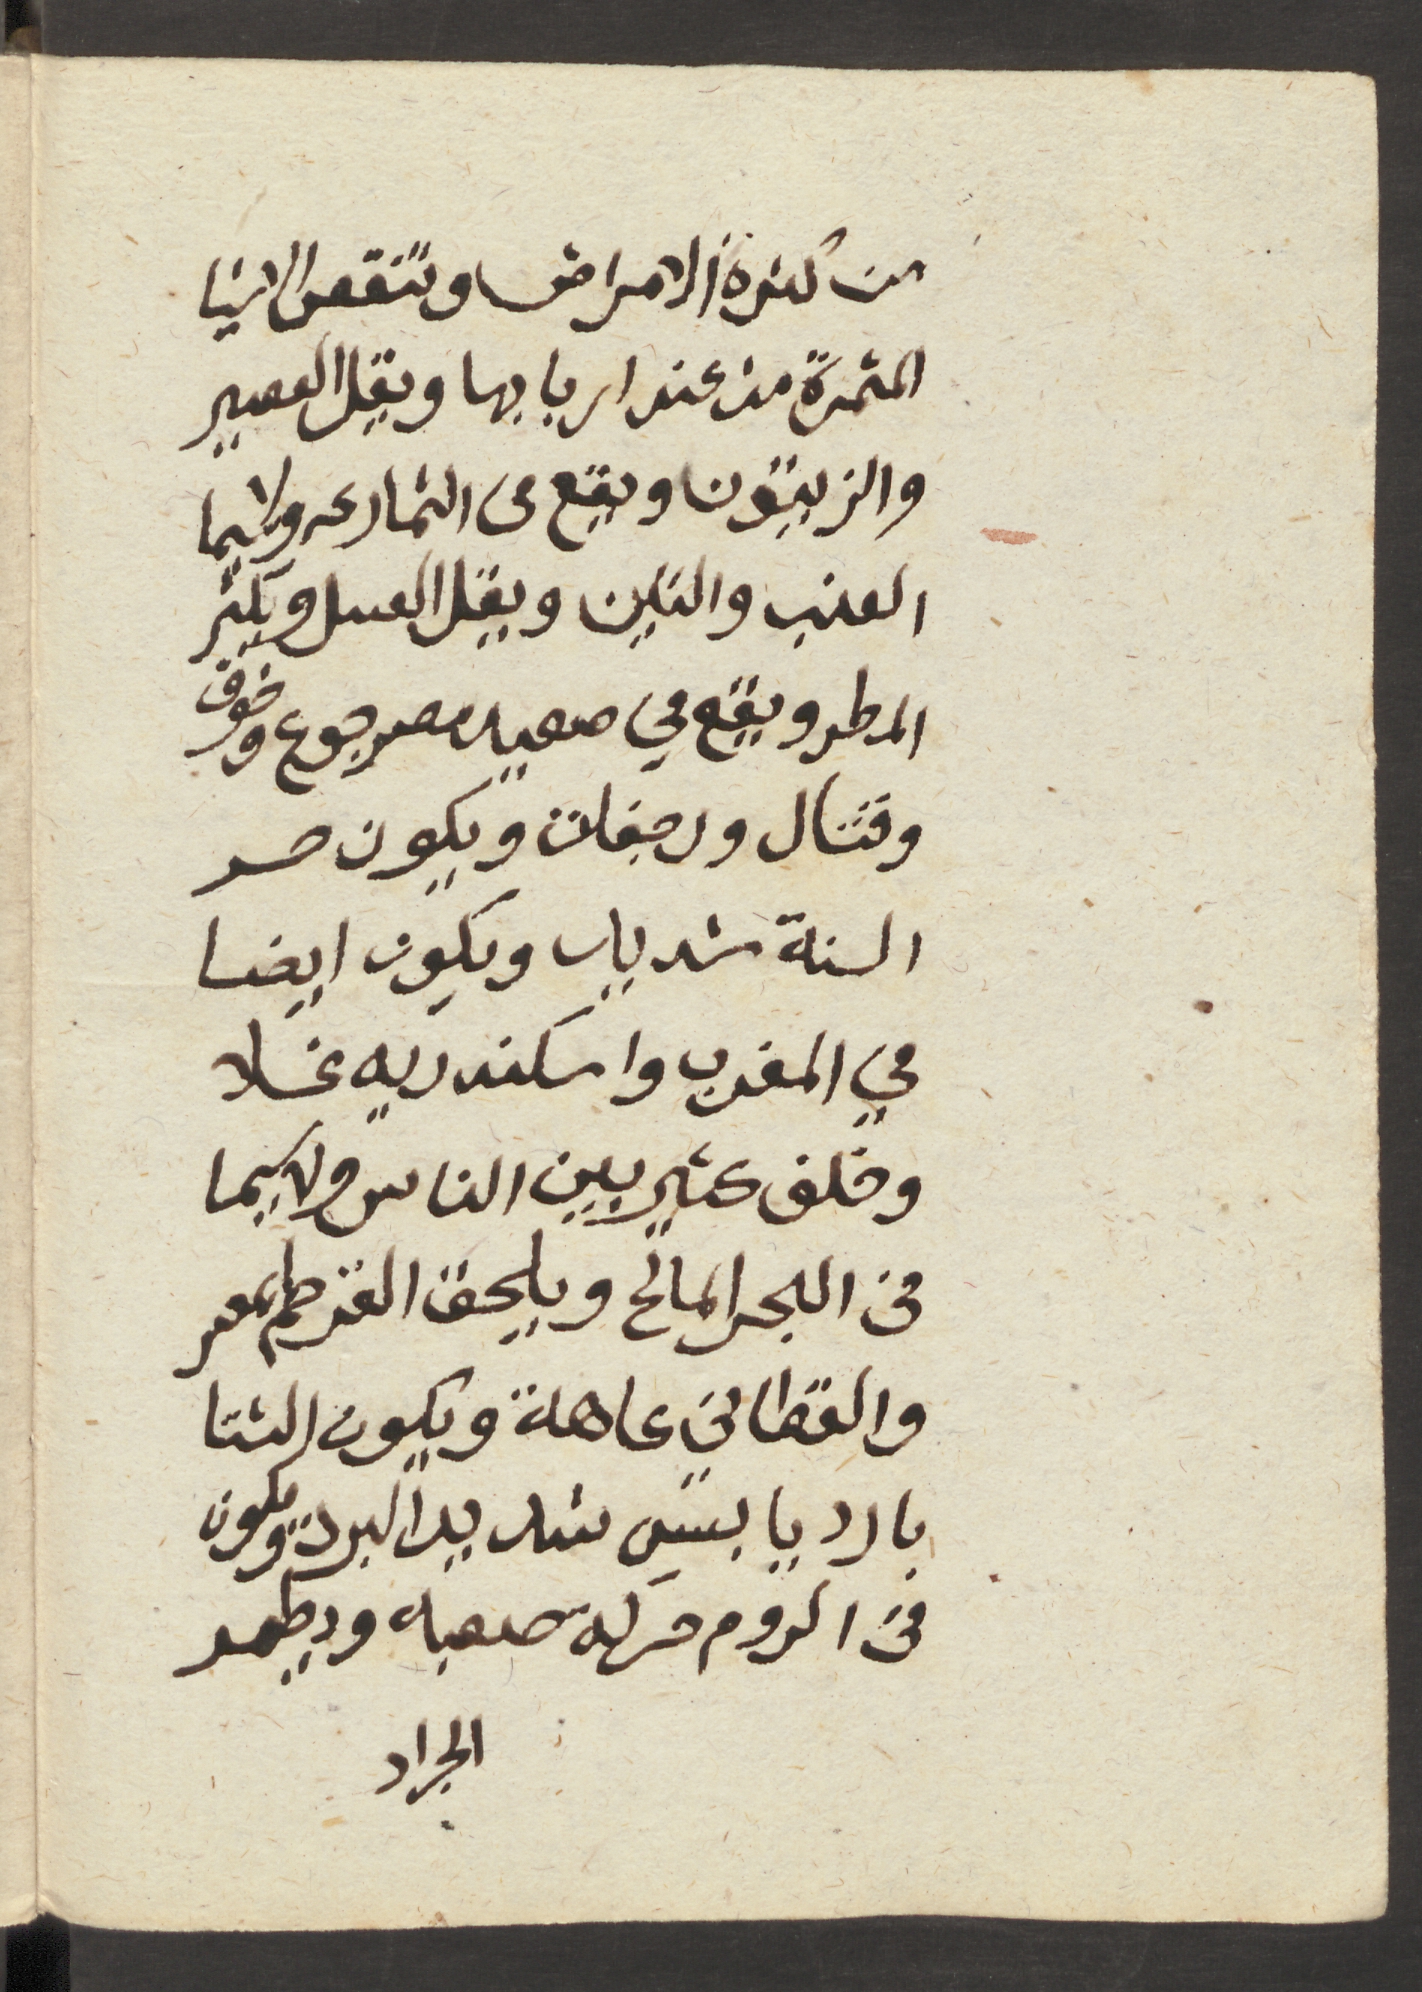 من كثرة الامراض وتنقص الاشيا
المثمرة من عند اربابها ويقل العصير
والزيتون ويقع في الثمار عه ولاسيما
العنب والتين ويقل العسل ويكثر
المطر ويقع في صعيد مصر جوع وخوف
وقتال ورجفات ويكون حر
السنة شديد ويكون ايضا
في المغرب واسكندريه غلا
وخلف كثير بين الناس ولاسيما
في البحر المالح ويلحق القرطم بمصر
والقطاني عاهة ويكون الشتا
بارد يابس شديد البرد ويكون
في الروم حركه صعبه ويظهر
الجراد